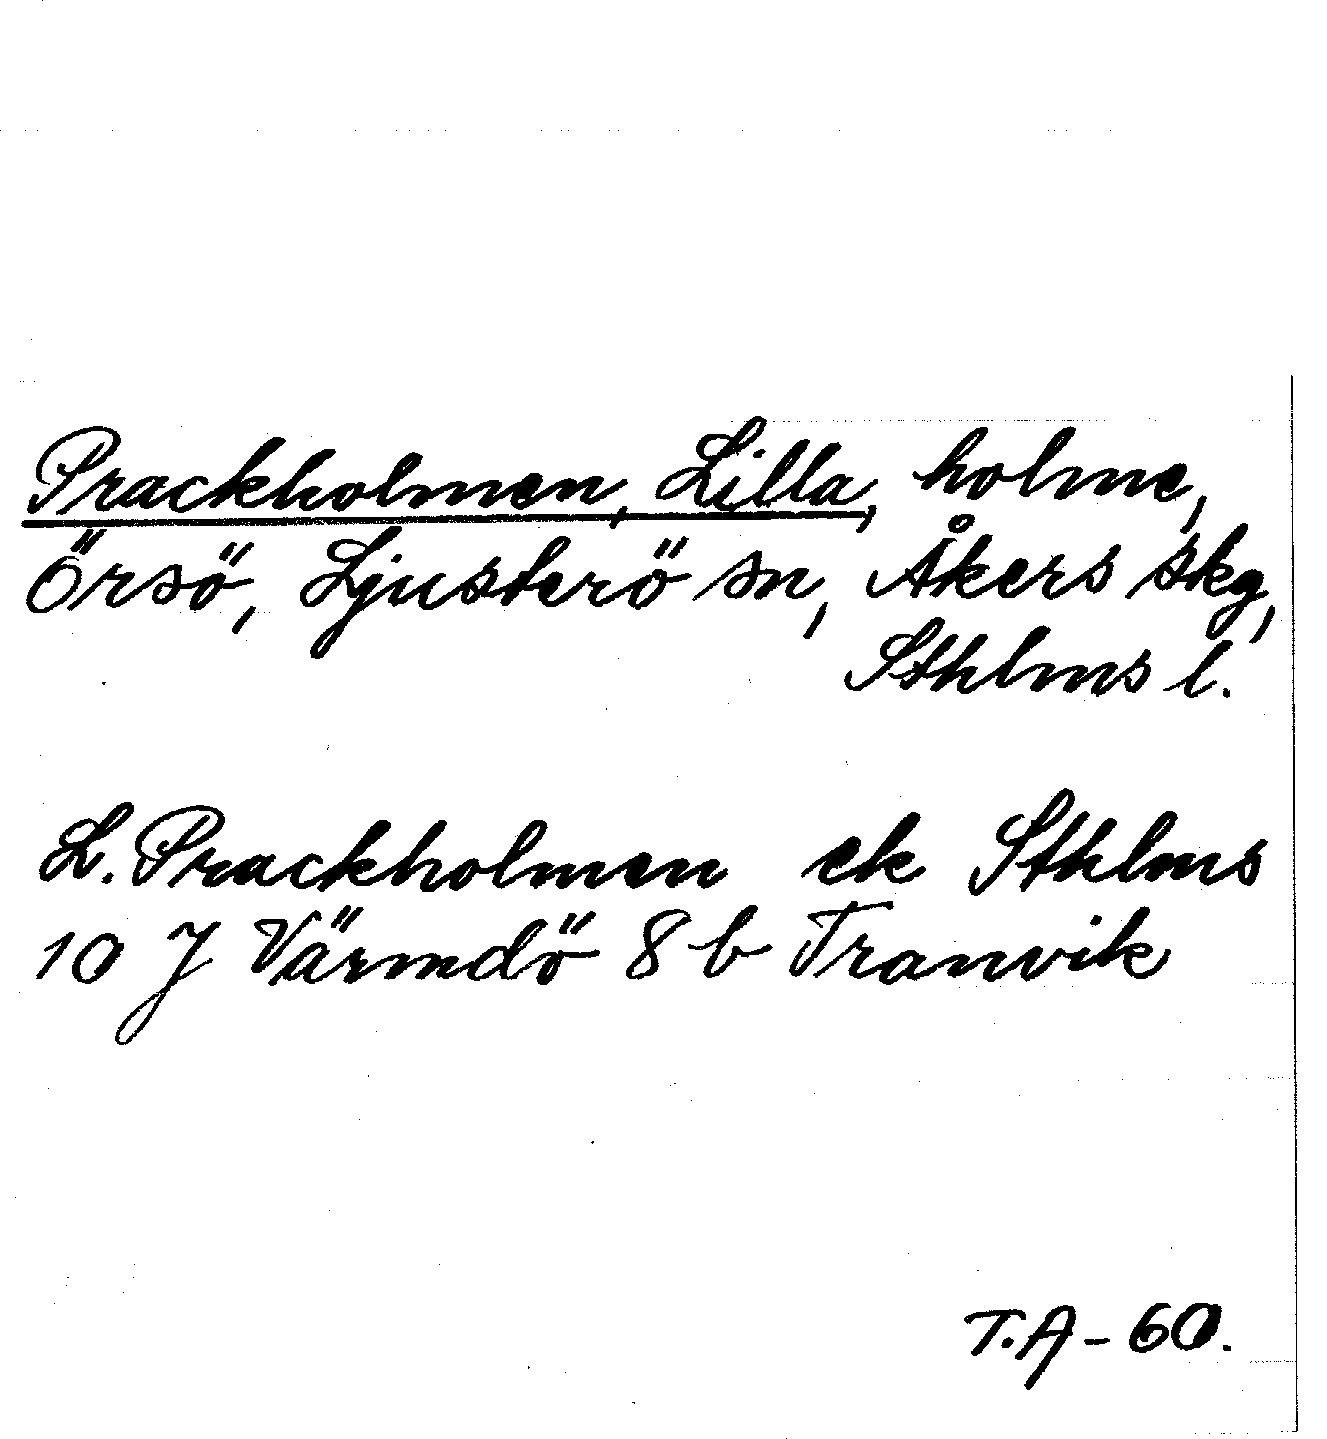 Prackholmen, Lilla, holme,
Örsö, Ljusterö sn, Åkers skg,
Sthlms l.
L. Prackholmen ek Sthlms
10 J Värmdö 8 b Tranvik
T.A - 60.